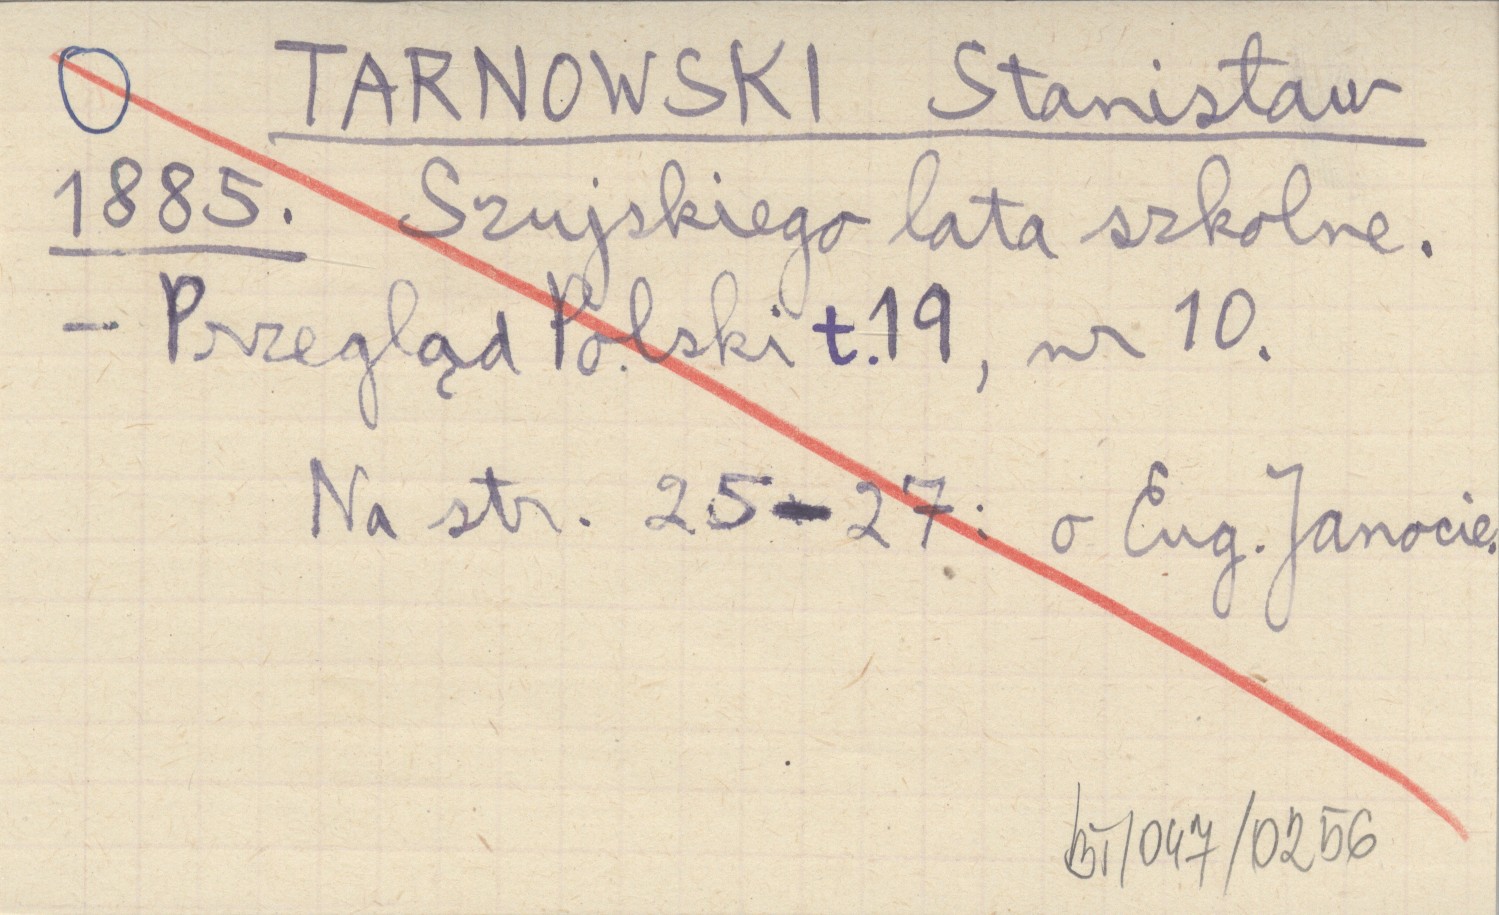 O TARNOWSKI Stanisław
1885. Szujskiego lata szkolne.
– Przegląd Polski t.19, nr 10.
Na str. 25-27: o Eug. Janocie.
/047/0256